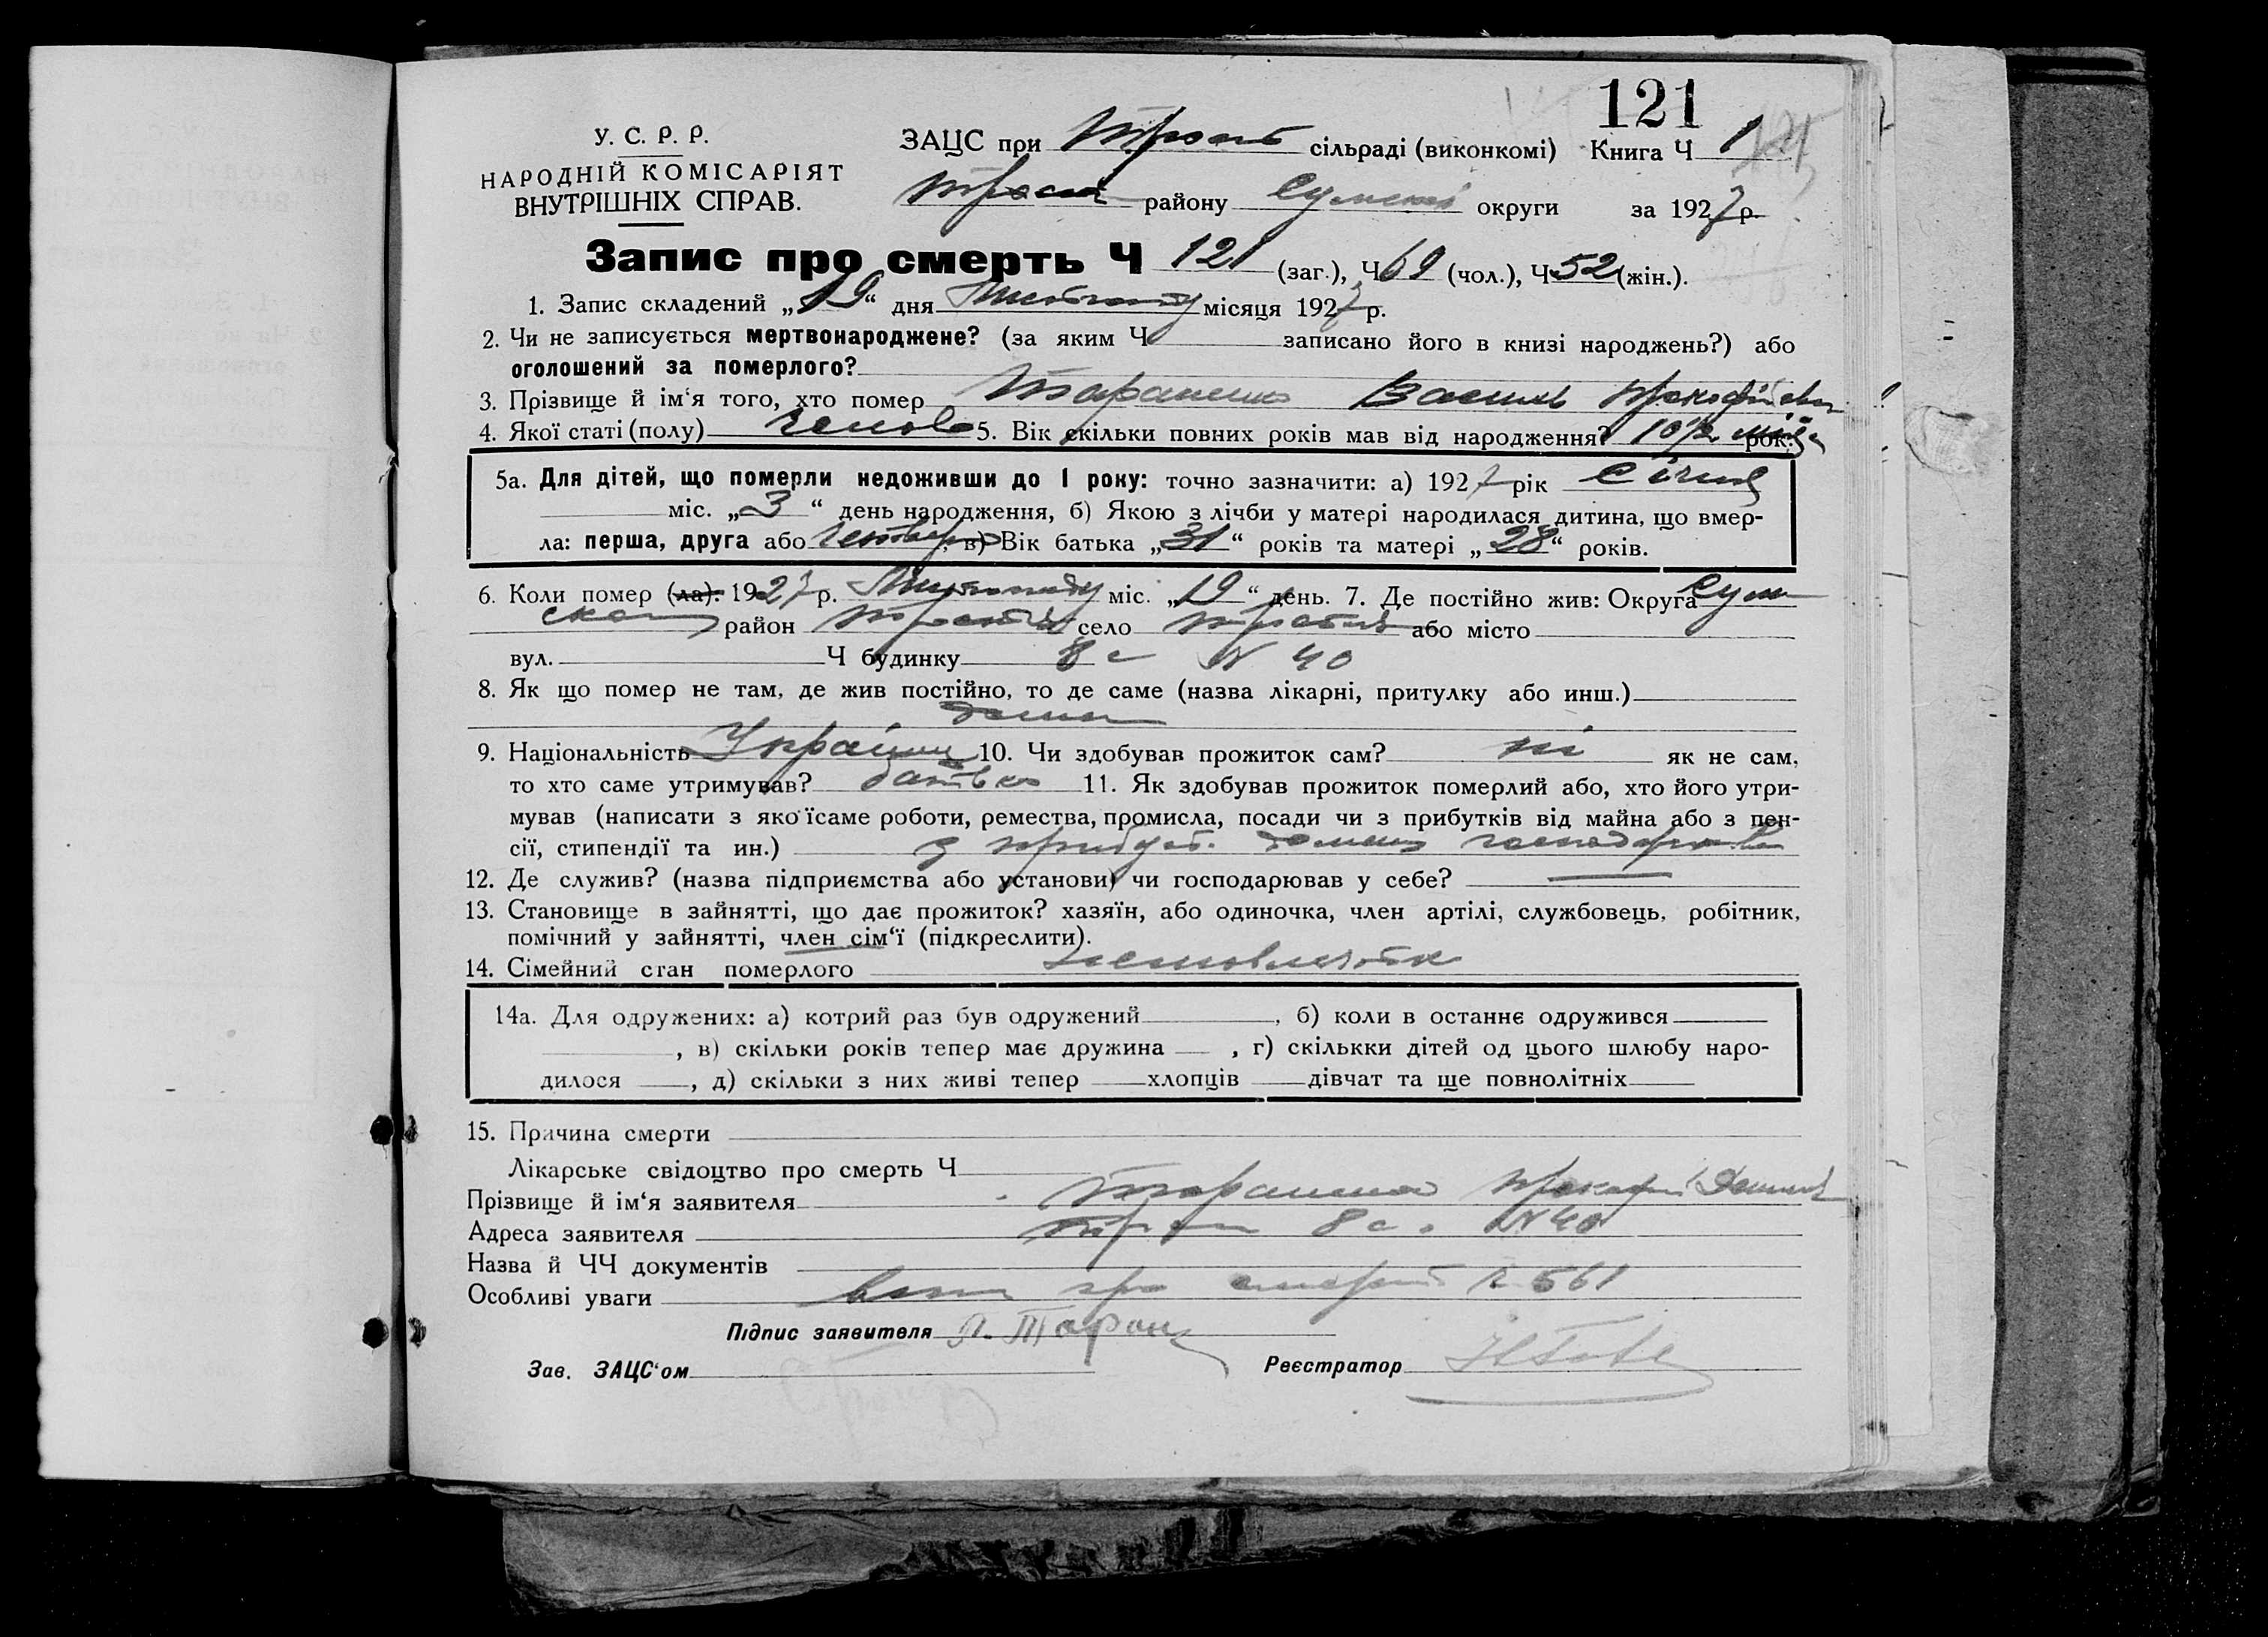 121
У. С. Р. Р.
НАРОДНІЙ КОМІСАРІЯТ
ВНУТРІШНІХ СПРАВ.
ЗАЦС при Трост сільраді (виконкомі) Книга Ч 1
району Сумської округи за 1927 р.
Запис про смерть Ч 121 (заг.), Ч 69 (чол.), Ч 52 (жін.).
1. Запис складений „19“ дня Листопаду місяця 1927 р.
2. Чи не записується мертвонароджене? (за яким Ч записано його в книзі народжень?) або
оголошений за померлого?
3. Прізвище й ім‘я того, хто помер Тараненко Василь Прокофійович
4. Якої статі (полу) чолов 5. Вік скільки повних років мав від народження? 10½ міся рок.
5а. Для дітей, що померли недоживши до 1 року: точно зазначити: а) 1927 рік січня
міс. „3“ день народження, б) Якою з лічби у матері народилася дитина, що вмер-
ла: перша, друга або четверта, в) Вік батька „31“ років та матері „28“ років.
6. Коли помер (ла): 1927 р. Листопаду міс. „19“ день. 7. Де постійно жив: Округа Сум
ська район село або місто
вул. Ч будинку 8 с N 40
8. Як що помер не там, де жив постійно, то де саме (назва лікарні, притулку або инш.)
дома
9. Національність Україн 10. Чи здобував прожиток сам? ні як не сам,
то хто саме утримував? батько 11. Як здобував прожиток померлий або, хто його утри-
мував (написати з якоїсаме роботи, ремества, промисла, посади чи з прибутків від майна або з пен-
сії, стипендії та ин.) з прибут. господарства
12. Де служив? (назва підприємства або установи) чи господарював у себе? —
13. Становище в зайнятті, що дає прожиток? хазяїн, або одиночка, член артілі, службовець, робітник,
помічний у зайнятті, член сім‘ї (підкреслити).
14. Сімейний стан померлого
14а. Для одружених: а) котрий раз був одружений, б) коли в останнє одружився
, в) скільки років тепер має дружина , г) скількки дітей од цього шлюбу наро-
дилося , д) скільки з них живі тепер хлопців дівчат та ще повнолітніх
15. Причина смерти
Лікарське свідоцтво про смерть Ч
Прізвище й ім‘я заявителя Тараненко Прокофій
Адреса заявителя 8 с. N 40
Назва й ЧЧ документів
Особливі уваги про смерть 561
Підпис заявителя П. Таран
Зав. ЗАЦС‘ом Реєстратор